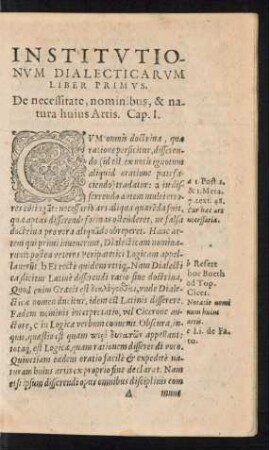 INSTITVTIO-
NVM DIALECTICARVM
LIBER PRIMVS.
De necessitate, nominibus, & na-
tura huius Artis. Cap. I.
CVM omnis doctrina, quæ
ratione perficitur, disseren-
do (id est ex uno ignotum
aliquid oratione patefa-
ciendo) tradatur: a in dis-
serendo autem multi erro-
res necessaria ars aliqua quædã fuit,
qua aptas disserendi formas ostenderet, ne falsa
doctrina pro vera aliquãdo obreperet. Hanc au-
tem qui primi inuenerunt, Dialecticam nomina-
runt: postea vetere Peripatetici Logicam appel-
larunt: b & rectè quidem vtrãq;. Nam Dialecti-
ca dicitur Latinè disserendi ratio siue doctrina,
Quod enim Græci est, vnde Diale-
ctica nomen ducitur, idem est Latinis disserere.
Eadem nominis interpretatio, vel Cicerone au-
ctore, c in Logica verbum conuenit. Obscura, in-
quit, quæstio est quam appellant:
totaq́; est Logica, quam rationem disserendi voco.
Quoniam eadem oratio facilè & expeditè na-
turam huius artis ex proprio fine declarat. Nam
etsi ipsum disserendi opus omnibus disciplinis com
A mune
a 1. Post. 1.
& 1. Meta.
7. text. 48.
Cur hæc ars
necessaria.
b Refert
hoc Boeth
ad Top.
Cicer.
Notatio nomi
num huius
artis.
c Li. de Fa-
to.